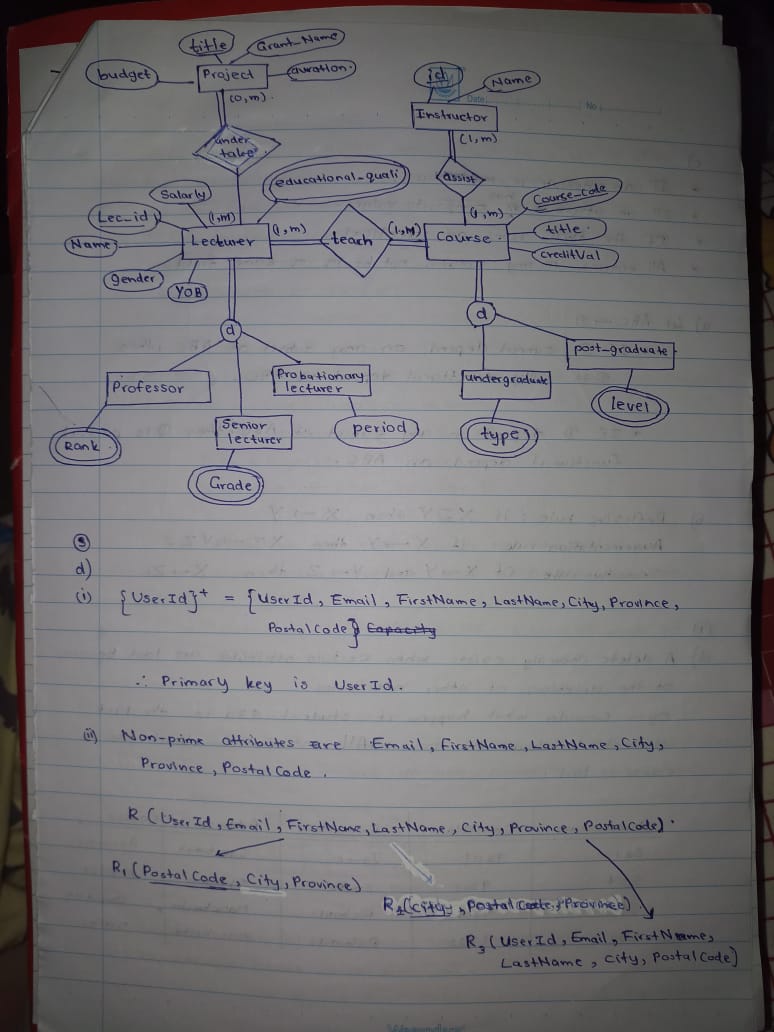 title
Grant_Name
budget
Project
duration
(0,m)
id
Name
Date:
No
Instructor
(1,m)
under
take
assist
Salarly
educational_quali
(1,m)
Course_code
Lec_id
(1,M)
(1,m)
(1,M)
title
Name
Lecturer
teach
Course
creditVal
gender
YOB
d
d
Professor
Probationary
lecturer
undergraduate
post_graduate
Rank
Senior
lecturer
period
type
level
Grade
③
d)
(i) {UserId}+ = {UserId, Email, FirstName, LastName, City, Province,
PostalCode} Capacity
∴ Primary key is UserId.
ii) Non-prime attributes are Email, FirstName, LastName, City,
Province, PostalCode.
R (UserId, Email, FirstName, LastName, City, Province, PostalCode).
R1 (Postal Code, City, Province)
R2 (City, Postal Code, Province)
R3 (UserId, Email, FirstName,
LastName, City, PostalCode)